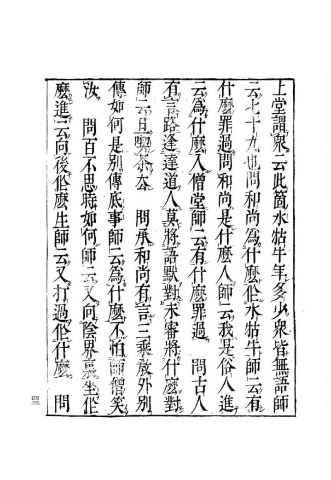 上堂謂衆云此箇水牯牛年多少衆皆無語師
云七十九也問和尚為什麽作水牯牛師云有
什麽罪過問和尚是什麽人師云我是俗人進
云為什麽入僧堂師云有什麽罪過 問古人
有言路逢達道人莫將語默對未審將什麽對
師云且喫茶去 問承和尚有言三乘教外別
傳如何是別傳底事師云為什麽不怕師僧笑
汝 問百不思時如何師云又向陰界裏坐作
麽進云向後作麽生師云又打過作什麽 問